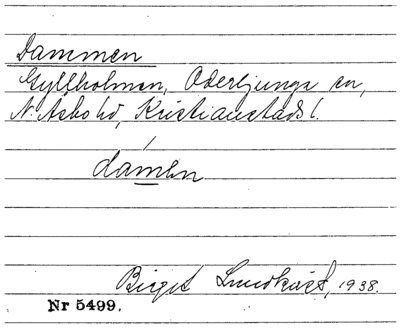 Dammen
Gyllholmen, Oderljunga sn,
N. Åsbo hd, Kristianstads l.
dámen
Birgit Lundkvist, 1938.
Nr 5499.